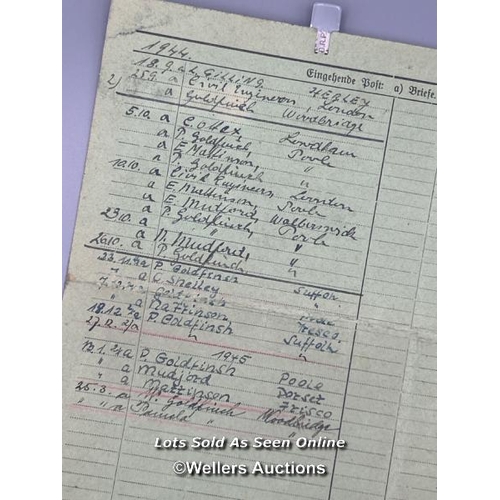 1944.
Eingehende Post: a) Briefe.
18.9. a L. GILLING, HENLEY
25.9. a Civil Engineers, London
2) a Goldfinch Woodbridge
5.10. a C. Lowdham
a P. Goldfinch, Poole
a E. Mattinson, "
a P. Goldfinch "
10.10. a Civil Engineers, London
a E. Mattinson, Poole
a E. Mudford, Walberswick
23.10. a P. Goldfinch, Poole
a "
26.10. a N. Mudford, "
a P. Goldfinch, "
a P. Goldfinsh Suffolk
" a Shelley "
a
" a Mattinson Fresco.
18.12. a P. Goldfinsh Suffolk
27.12. "
1945
13.1. a P. Goldfinsh Poole
" a Mudford Dorset
" a Mattinson Frisco
25.3. a Goldfinch Woodbridge
" " a "
Lots Sold As Seen Online
©Wellers Auctions